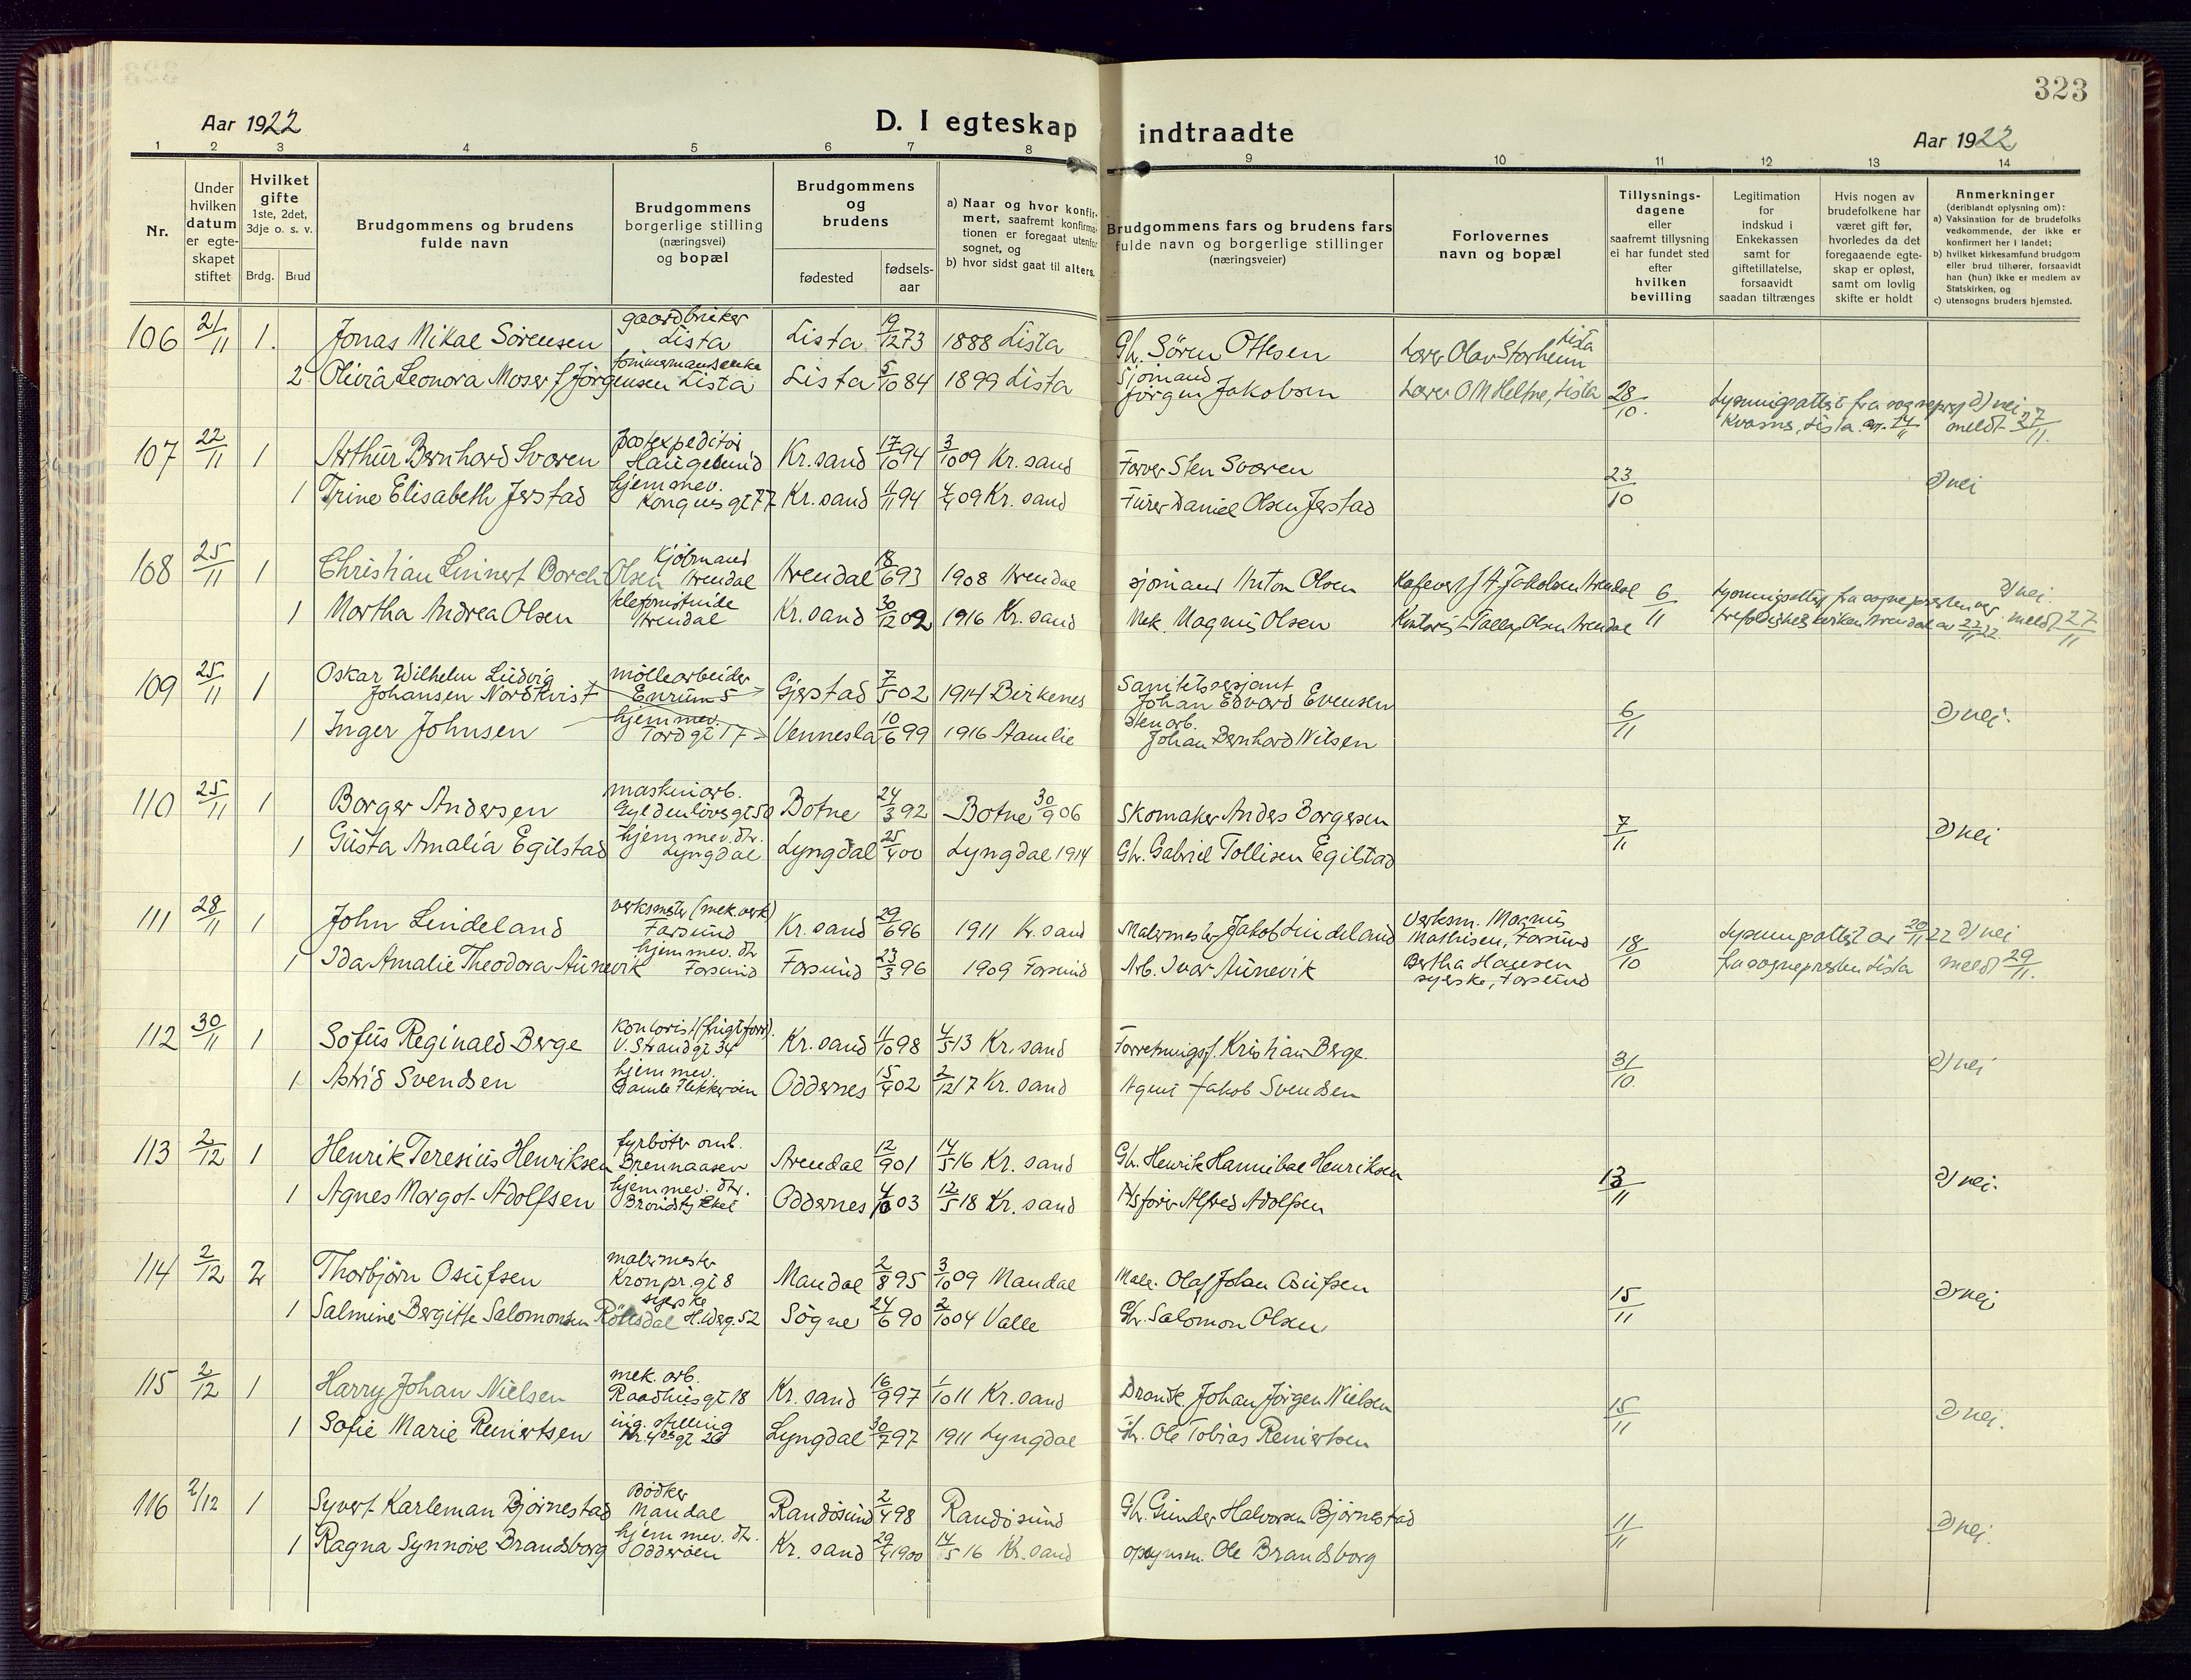 323
Aar 1922
D. I egteskap indtraadte
Aar 1922
1 2 3 4 5 6 7 8 9 10 11 12 13 14
Nr.
Under hvilken datum er egteskapet stiftet
Hvilket gifte 1ste, 2det, 3dje o. s. v.
Brdg. Brud
Brudgommens og brudens fulde navn
Brudgommens borgerlige stilling (næringsvei) og bopæl
Brudgommens og brudens
fødested
fødsels-aar
a) Naar og hvor konfirmert, saafremt konfirmationen er foregaat utenfor sognet, og
b) hvor sidst gaat til alters.
Brudgommens fars og brudens fars fulde navn og borgerlige stillinger (næringsveier)
Forlovernes navn og bopæl
Tillysnings-dagene eller saafremt tillysning ei har fundet sted efter hvilken bevilling
Legitimation for indskud i Enkekassen samt for giftetillatelse, forsaavidt saadan tiltrænges
Hvis nogen av brudefolkene har været gift før, hvorledes da det foregaaende egteskap er opløst, samt om lovlig skifte er holdt
Anmerkninger (deriblandt oplysning om):
a) Vaksination for de brudefolks vedkommende, der ikke er konfirmert her i landet;
b) hvilket kirkesamfund brudgom eller brud tilhører, forsaavidt han (hun) ikke er medlem av Statskirken, og
c) utensogns bruders hjemsted.
106 21/11 1. Jonas Mikal Sörensen gaardbruker Lista Lista 19/12 73 1888 Lista Gbr. Sören Ottesen Lærer Olav Storheim Lista
2 Olivia Leonora Moser f Jörgensen tömmermandsenke Lista Lista 5/10 84 1899 Lista Sjömand Jörgen Jakobsen Lærer O M Heltne, Lista 28/10. Lysningsattest fra sognepr. Kvasnes, Lista av. 14/11 a) nei meldt 27/11.
107 22/11 1 Arthur Bernhard Svaren postexpeditör Haugesund Kr.sand 17/10 94 3/10 09 Kr. sand Farver Sten Svaren
1 Trine Elisabeth Jerstad hjemmev. Kongensgt 77 Kr. sand 11/11 94 4/4 09 Kr. sand Fürer Daniel Olsen Jerstad 23/10 a) nei
108 25/11 1 Christian Linnert Borch Olsen Kjöbmand Arendal Arendal 18/6 93 1908 Arendal sjömand Anton Olsen J A Jakobsen Arendal
1 Martha Andrea Olsen telefonistinde Arendal Kr. sand 30/12 02 1916 Kr. sand Mek. Magnus Olsen Kontorist Tallag Olsen Arendal 6/11 Lysningsattest fra sognepresten ver trefoldighetskirken Arendal av 22/11 22 a) nei. meldt 27/11
109 25/11 1 Oskar Wilhelm Ludvig Johansen Nordkvist möllearbeider Enrum 5 Gjerstad 7/5 02 1914 Birkenes Sanitetssersjant Johan Edvard Evensen
1 Inger Johnsen hjemmev. Tordgt 17 Vennesla 10/6 99 1916 Stenarb. Johan Bernhard Nilsen 6/11 a) nei.
110 25/11 1 Borger Andersen maskinarb. Gyldenlövsgt 50 Botne 24/3 92 Botne 30/9 06 Skomaker Anders Borgersen
1 Gusta Amalia Egilstad hjemmev. dtr. Lyngdal Lyngdal 25/4 00 Lyngdal 1914 Gbr. Gabriel Tollisen Egilstad 7/11 a) nei
111 28/11 1 John Lindeland verksmester (mek. verk) Farsund Kr. sand 29/6 96 1911 Kr. sand Malermester Jakob Lindeland Verksm. Magnus Mathisen, Farsund
1 Ida Amalie Theodora Aunevik hjemmev. dtr Farsund Farsund 23/3 96 1909 Farsund Arb. Ivar Aunevik Bertha Hansen syerske, Farsund 18/10 Lysningsattest av 20/11 22 fra sognepresten Lista a) nei meldt 29/11.
112 30/11 1 Sofus Reginald Berge kontorist V. Strandgt 34 Kr. sand 11/10 98 4/5 13 Kr. sand Forretningsf. Kristian Berge.
1 Astrid Svendsen hjemmev. Gamle Flekkeröen Oddernes 15/4 02 2/12 17 Kr. sand Agent Jakob Svendsen 31/10. a) nei
113 2/12 1 Henrik Teresius Henriksen fyrböter omb. Brennaasen Arendal 12/9 01 14/5 16 Kr. sand Gbr. Henrik Hannibal Henriksen
1 Agnes Margot Adolfsen hjemmev. dtr. Oddernes 4/10 03 12/5 18 Kr. sand Alfred Adolfsen 13/11 a) nei.
114 2/12 2 Thorbjörn Osufsen malermester Kronpr.gt 8 Mandal 2/8 95 3/10 09 Mandal Maler. Olaf Johan Osufsen
1 Salmine Bergitte Salomonsen Röllsdal syerske H.Werg. 52 Sögne 24/6 90 2/10 04 Valle Gbr. Salomon Olsen 15/11 a) nei
115 2/12 1 Harry Johan Nielsen mek. arb. Raadhusgt 18 Kr. sand 16/9 97 1/10 11 Kr. sand Johan Jörgen Nielsen
1 Sofie Marie Reniertsen ing. stilling Kr. 4desgt 26 Lyngdal 30/7 97 1911 Lyngdal Gbr. Ole Tobias Reniertsen 15/11 a) nei.
116 2/12 1 Syvert Karleman Bjørnestad Bödker Mandal Randösund 2/4 98 Randösund Gbr. Gunder Halvorsen Bjørnestad
1 Ragna Synnöve Brandsborg hjemmev. dtr. Odderöen Kr. sand 29/4 1900 14/5 16 Kr. sand opsynsm. Ole Brandsborg 11/11 a) nei.